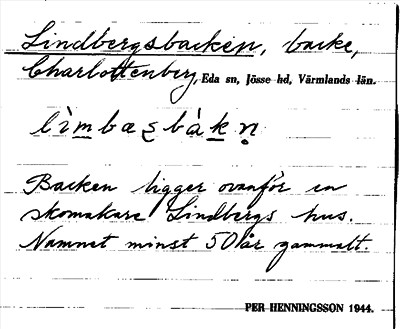 Lindbergsbacken, backe,
Charlottenberg, Eda sn, Jösse hd, Värmlands län.
lìmbæʂbàkn̥
Backen ligger ovanför en
skomakare Lindbergs hus.
Namnet minst 50 år gammalt.
PER HENNINGSSON 1944.